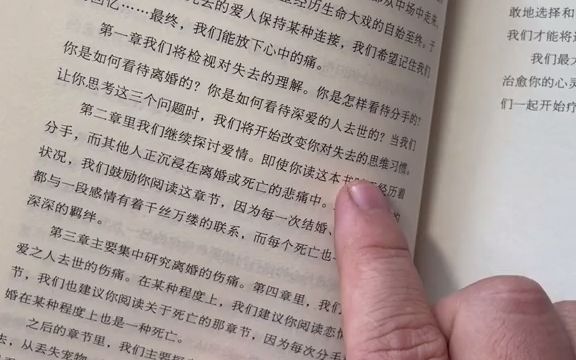 死去的爱人保持某种连接,我们希望记住我们
回忆……最终,我们能放下心中的痛。
第一章我们将检视对失去的理解。你是怎样看待分手的?
你是如何看待离婚的?你是如何看待深爱的人去世的?当我们
让你思考这三个问题时,我们将开始改变你对失去的思维习惯。
第二章里我们继续探讨爱情。即使你读这本书 经历着
分手,而其他人正沉浸在离婚或死亡的悲痛中。
状况,我们鼓励你阅读这章节,因为每一次结婚、 的
都与一段感情有着千丝万缕的联系,而每个死亡也
深深的羁绊。
第三章主要集中研究离婚的伤痛。第四章里,我们
爱之人去世的伤痛。在某种程度上,我们建议你阅读恋情
节,我们也建议你阅读关于死亡的那章节,因为每次分手
婚在某种程度上也是一种死亡。
之后的章节里,我们主要探
去,从丢失宠物
敢地选择和
我们才能将这
我们最大
治愈你的心灵
们一起开始疗